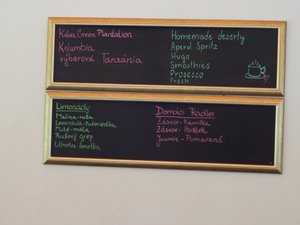 Káva Green Plantation
Kolumbia
výberová Tanzánia
Homemade dezerty
Aperol Spritz
Hugo
Smoothies
Prosecco
Fresh
Limonády
Malina-ruža
Levanduľa-čučoriedka
Maté-mäta
Ružový grep
Uhorka-limetka
Domáci Radler
Zázvor-Kamilka
Zázvor-Ibištek
Jazmín-Pomaranč